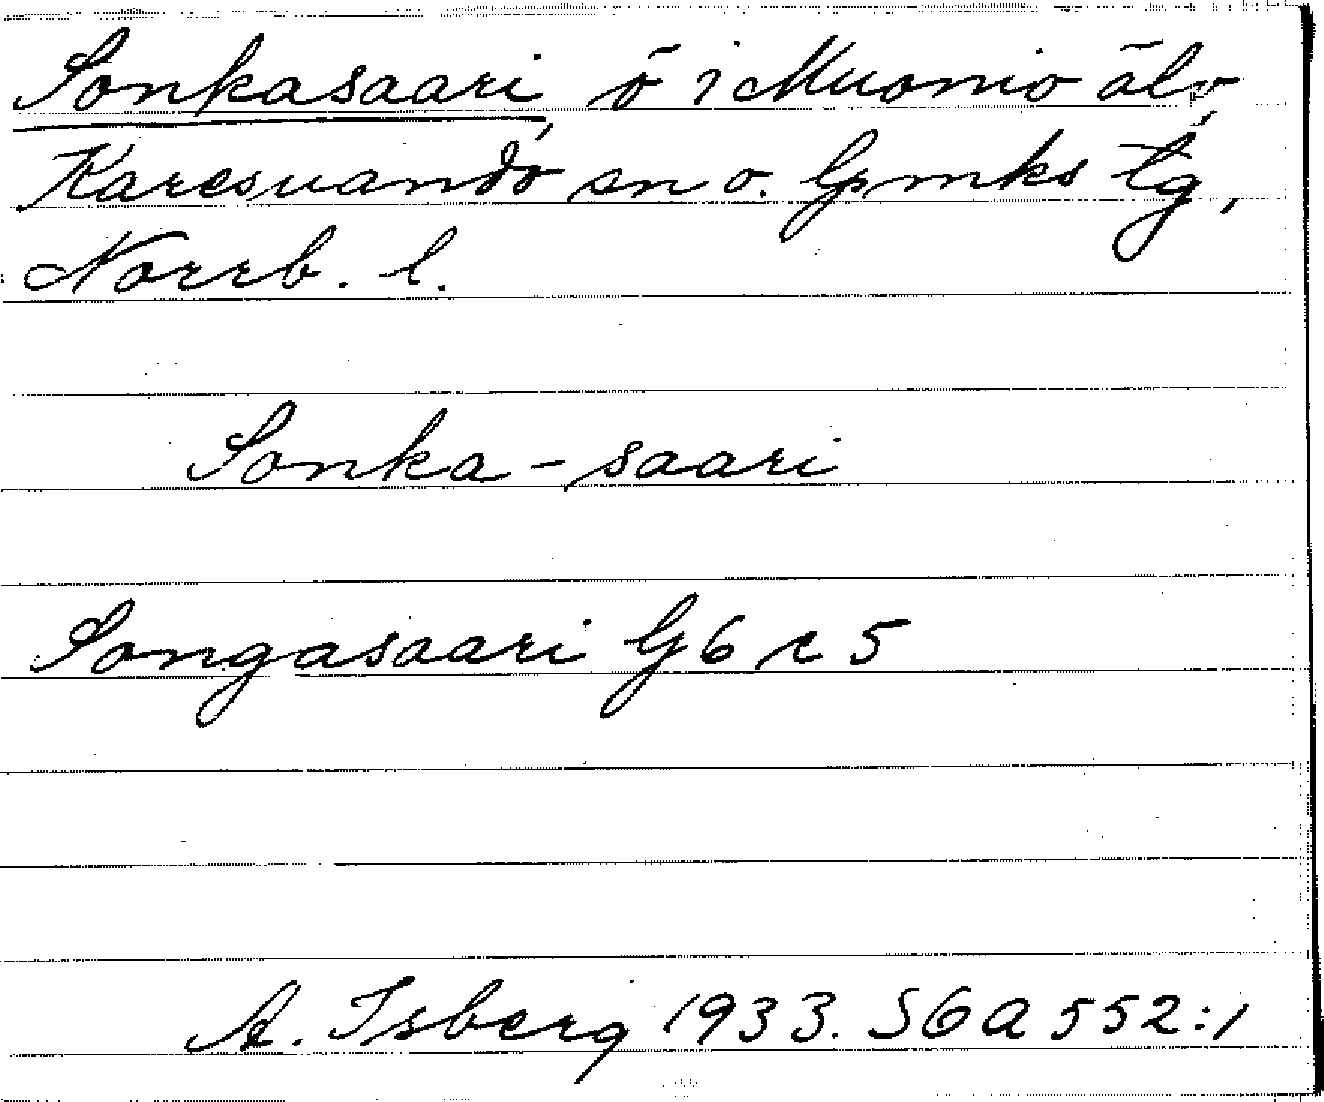 Sonkasaari, ö i Muonio älv,
Karesuando sn o. lpmks tg,
Norrb. l.
Sonka-saari
Songasaari G6c5
A. Isberg 1933. SGA 552:1